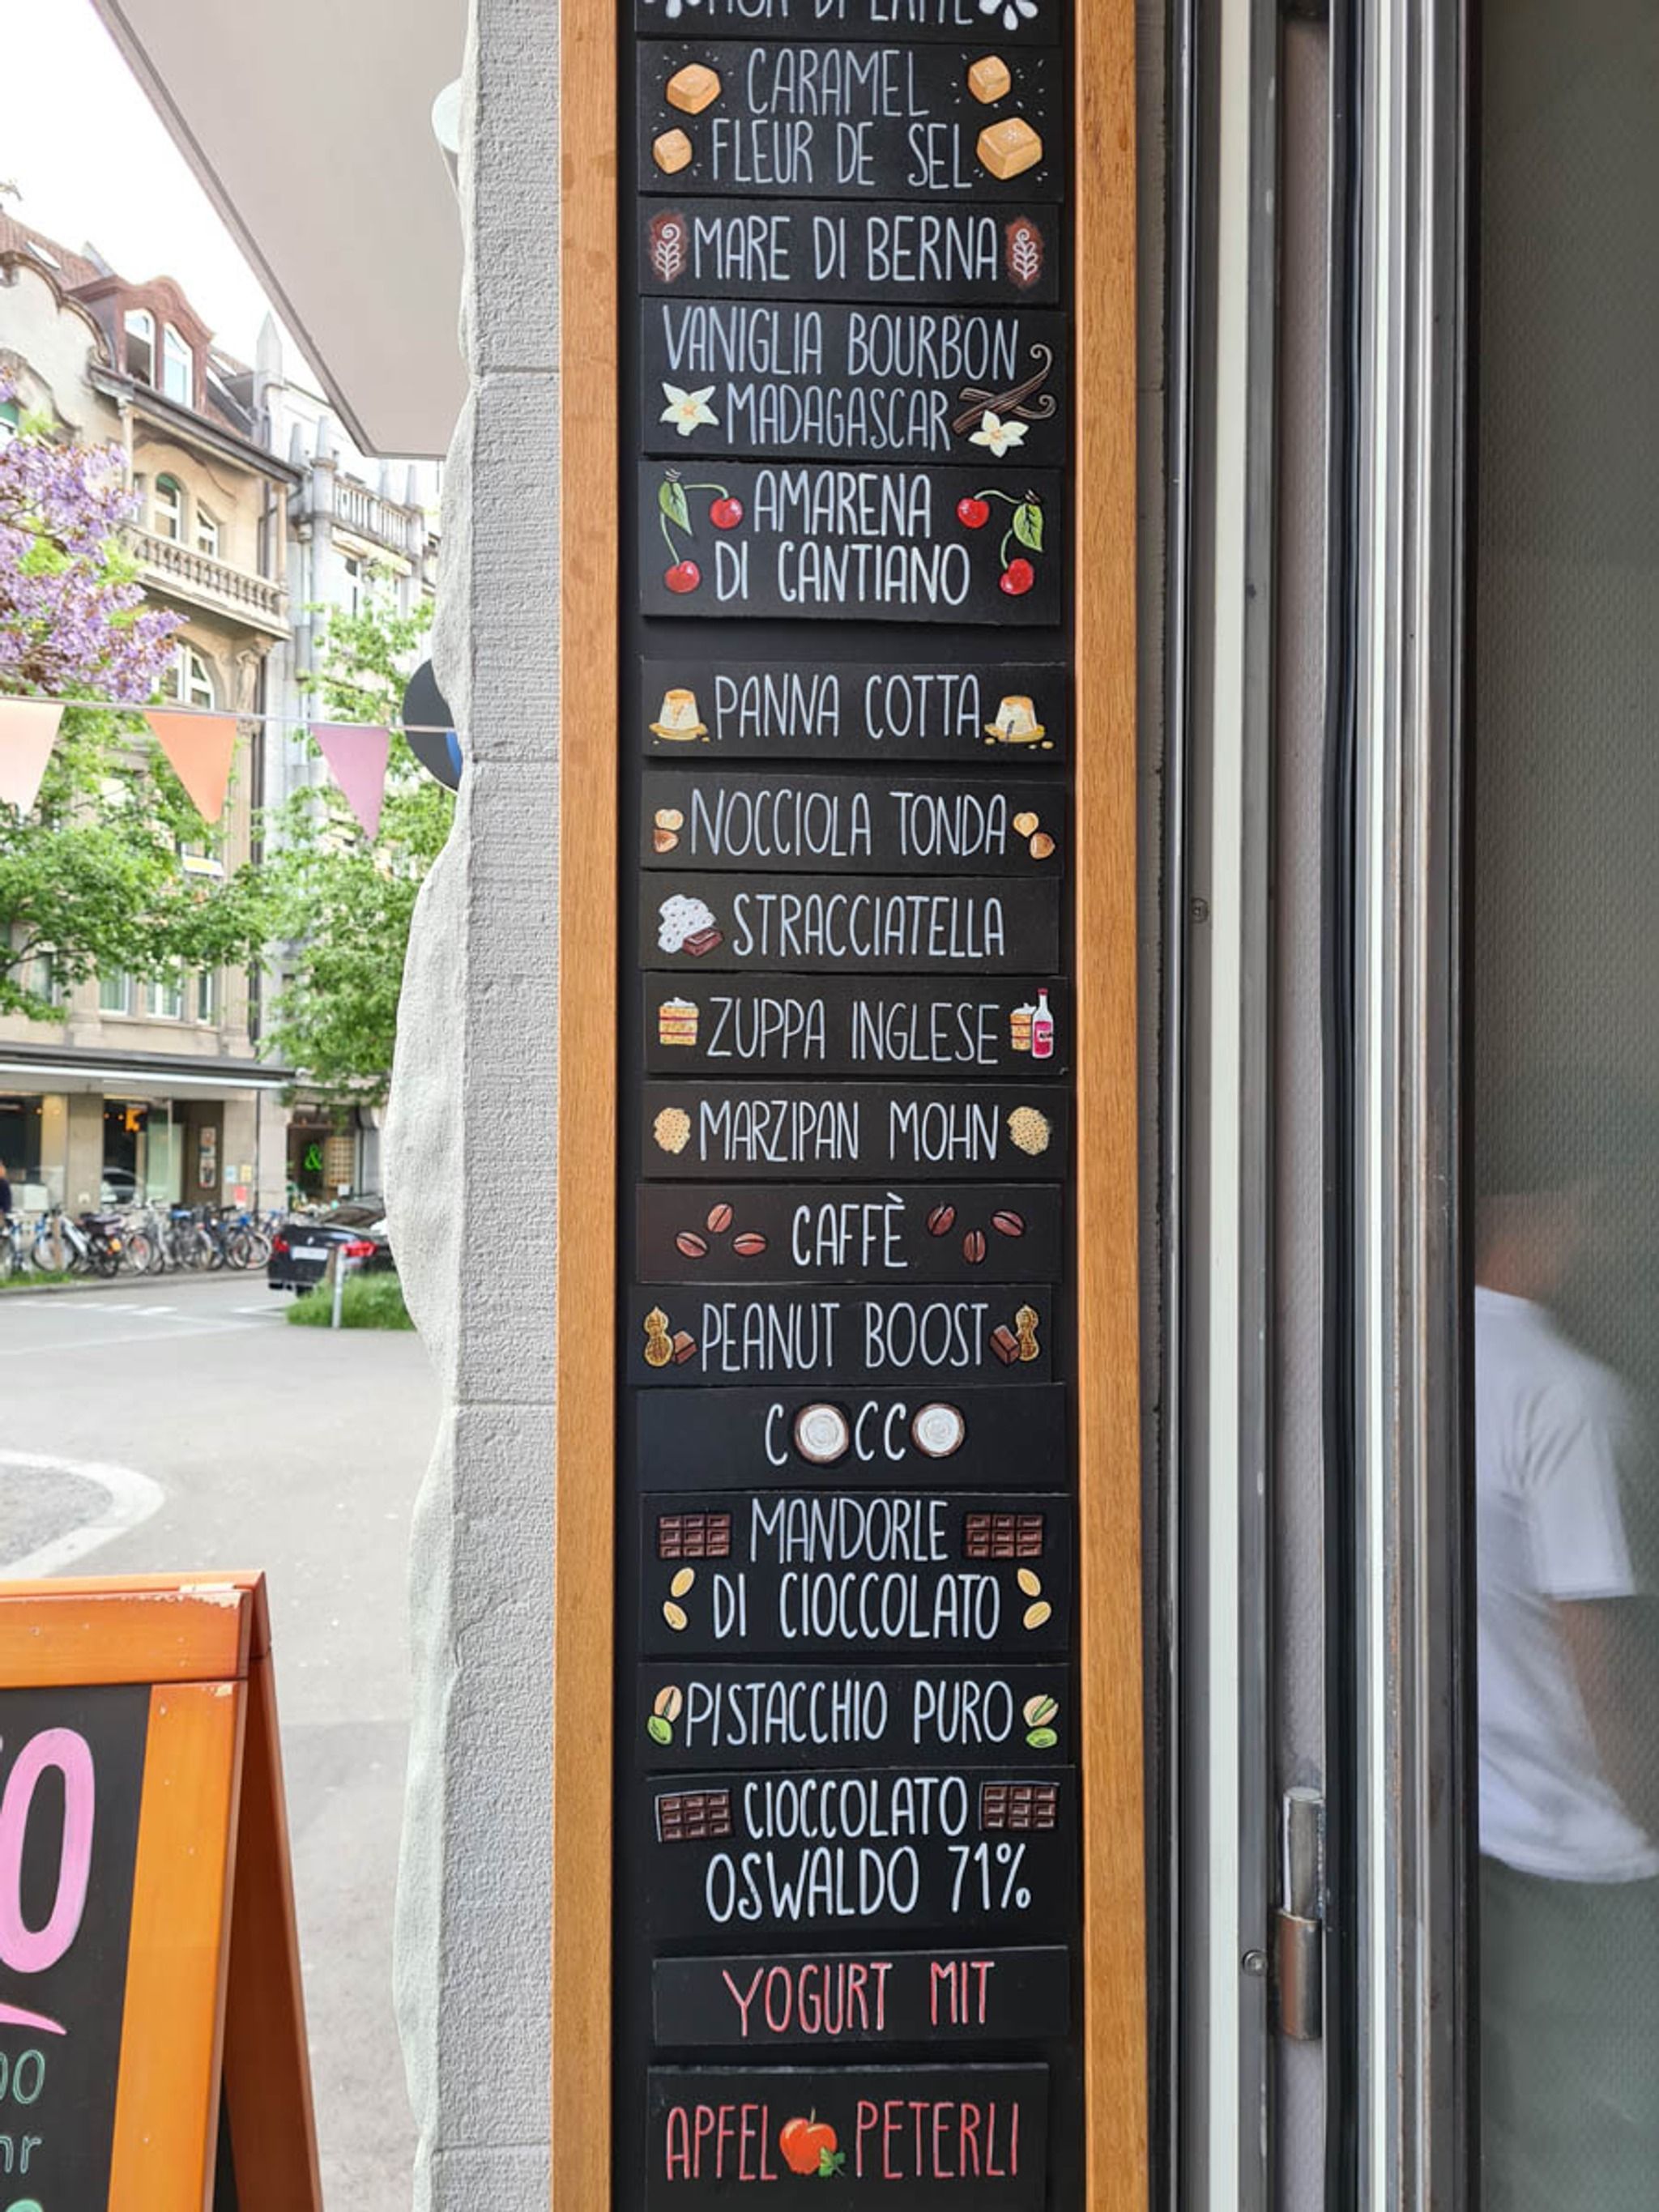 DI LATTE
CARAMEL
FLEUR DE SEL
MARE DI BERNA
VANIGLIA BOURBON
MADAGASCAR
AMARENA
DI CANTIANO
PANNA COTTA
NOCCIOLA TONDA
STRACCIATELLA
ZUPPA INGLESE
MARZIPAN MOHN
CAFFÈ
PEANUT BOOST
COCCO
MANDORLE
DI CIOCCOLATO
PISTACCHIO PURO
CIOCCOLATO
OSWALDO 71%
YOGURT MIT
APFEL PETERLI
&